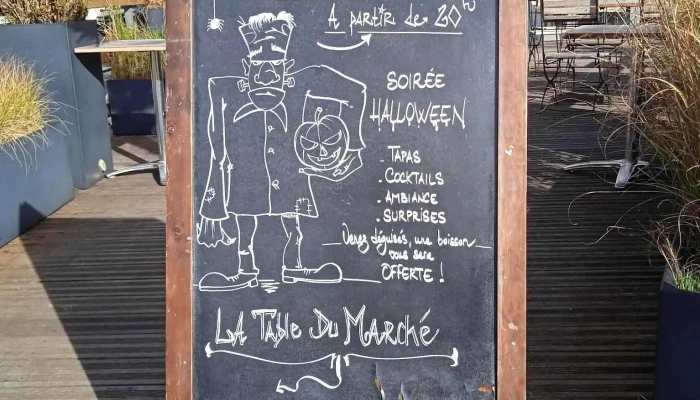 À partir de 20h
SOIRÉE
HALLOWEEN
- TAPAS
- COCKTAILS
- AMBIANCE
- SURPRISES
Venez déguisés, une boisson
vous sera
OFFERTE !
LA TABLE DU MARCHÉ